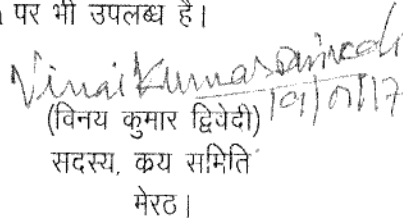 पर भी उपलब्ध है।
Vinai Kumar Dwivedi
(विनय कुमार द्विवेदी)
सदस्य, क्रय समिति
मेरठ।